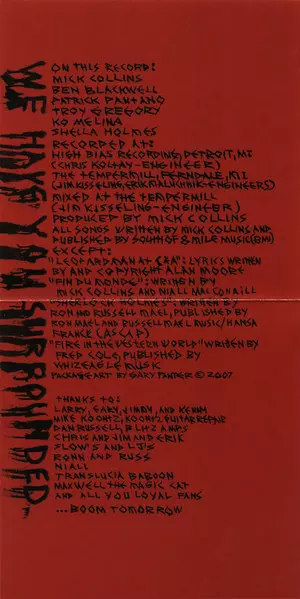 WE HAVE YOU SURROUNDED
ON THIS RECORD:
MICK COLLINS
BEN BLACKWELL
PATRICK PANTANO
TROY GREGORY
KO MELINA
SHELLA HOLMES
RECORDED AT:
HIGH BIAS RECORDING, DETROIT, MI
(CHRIS KOLTAY-ENGINEER)
THE TEMPERMILL, FERNDALE, MI
(JIM KISSELING, ERIK MALUCHNIK-ENGINEERS)
MIXED AT THE TEMPERMILL
(JIM KISSELING-ENGINEER)
PRODUCED BY MICK COLLINS
ALL SONGS WRITTEN BY MICK COLLINS AND
PUBLISHED BY SOUTH OF 8 MILE MUSIC (BMI)
EXCEPT:
"LEOPARDMAN AT C&A": LYRICS WRITTEN
BY AND COPYRIGHT ALAN MOORE
"FIN DU MONDE": WRITTEN BY
MICK COLLINS AND NIALL MACCONAILL
"SHERLOCK HOLMES": WRITTEN BY
RON AND RUSSELL MAEL, PUBLISHED BY
RON MAEL AND RUSSELL MAEL MUSIC/HANSA
FRANCE (ASCAP)
"FIRE IN THE WESTERN WORLD" WRITTEN BY
FRED COLE, PUBLISHED BY
WHIZEAGLE MUSK
PACKAGE ART BY GARY PANTER © 2007
THANKS TO:
LARRY, GARY, JIMMY, AND KENIM
MIKE KOONTZ, KOONTZ GUITAR REPAIR
DAN RUSSELL, BLHZ AMPS
CHRIS AND JIM AND ERIK
FLOW'S AND LJ'S
RONN AND RUSS
NIALL
TRANSLUCIA BABOON
MAXWELL THE MAGIC CAT
AND ALL YOU LOYAL FANS
...BOOM TOMORROW